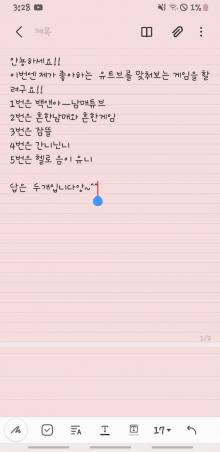 3:28
1%
제목
안용하세요!!
이번엔 제가 좋아하는 유트브를 맞춰보는 게임을 할
려구요!!
1번은 백앤아ㅡ남매튜브
2번은 흔한남매와 흔한게임
3번은 잠뜰
4번은 간니닌니
5번은 헬로 음이 유니
답은 두개입니다앙~^^
1/2
17